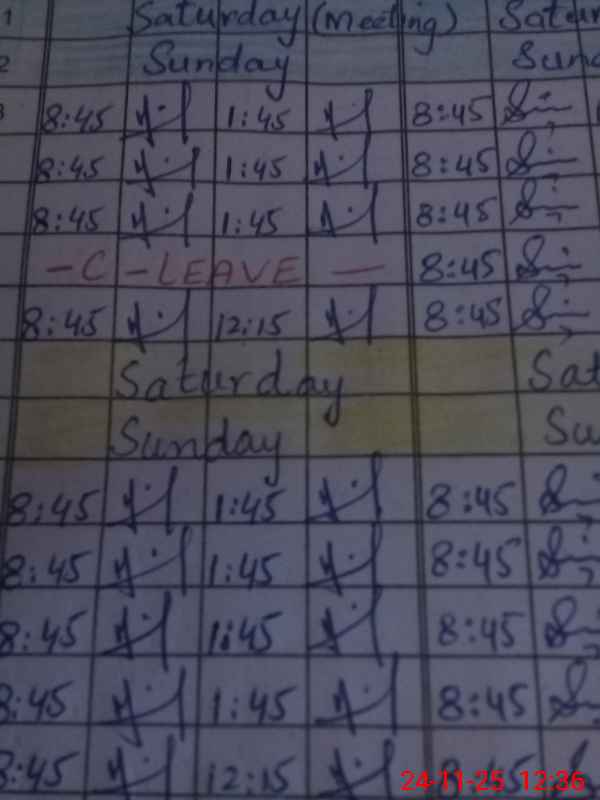 1 Saturday (Meeting) Satur
2 Sunday Sund
3 8:45 1:45 8:45
8:45 1:45 8:45
8:45 1:45 8:45
-C-LEAVE — 8:45
8:45 12:15 8:45
Saturday Sat
Sunday Su
8:45 1:45 8:45
8:45 1:45 8:45
8:45 1:45 8:45
8:45 1:45 8:45
8:45 12:15 8:45
24-11-25 12:36